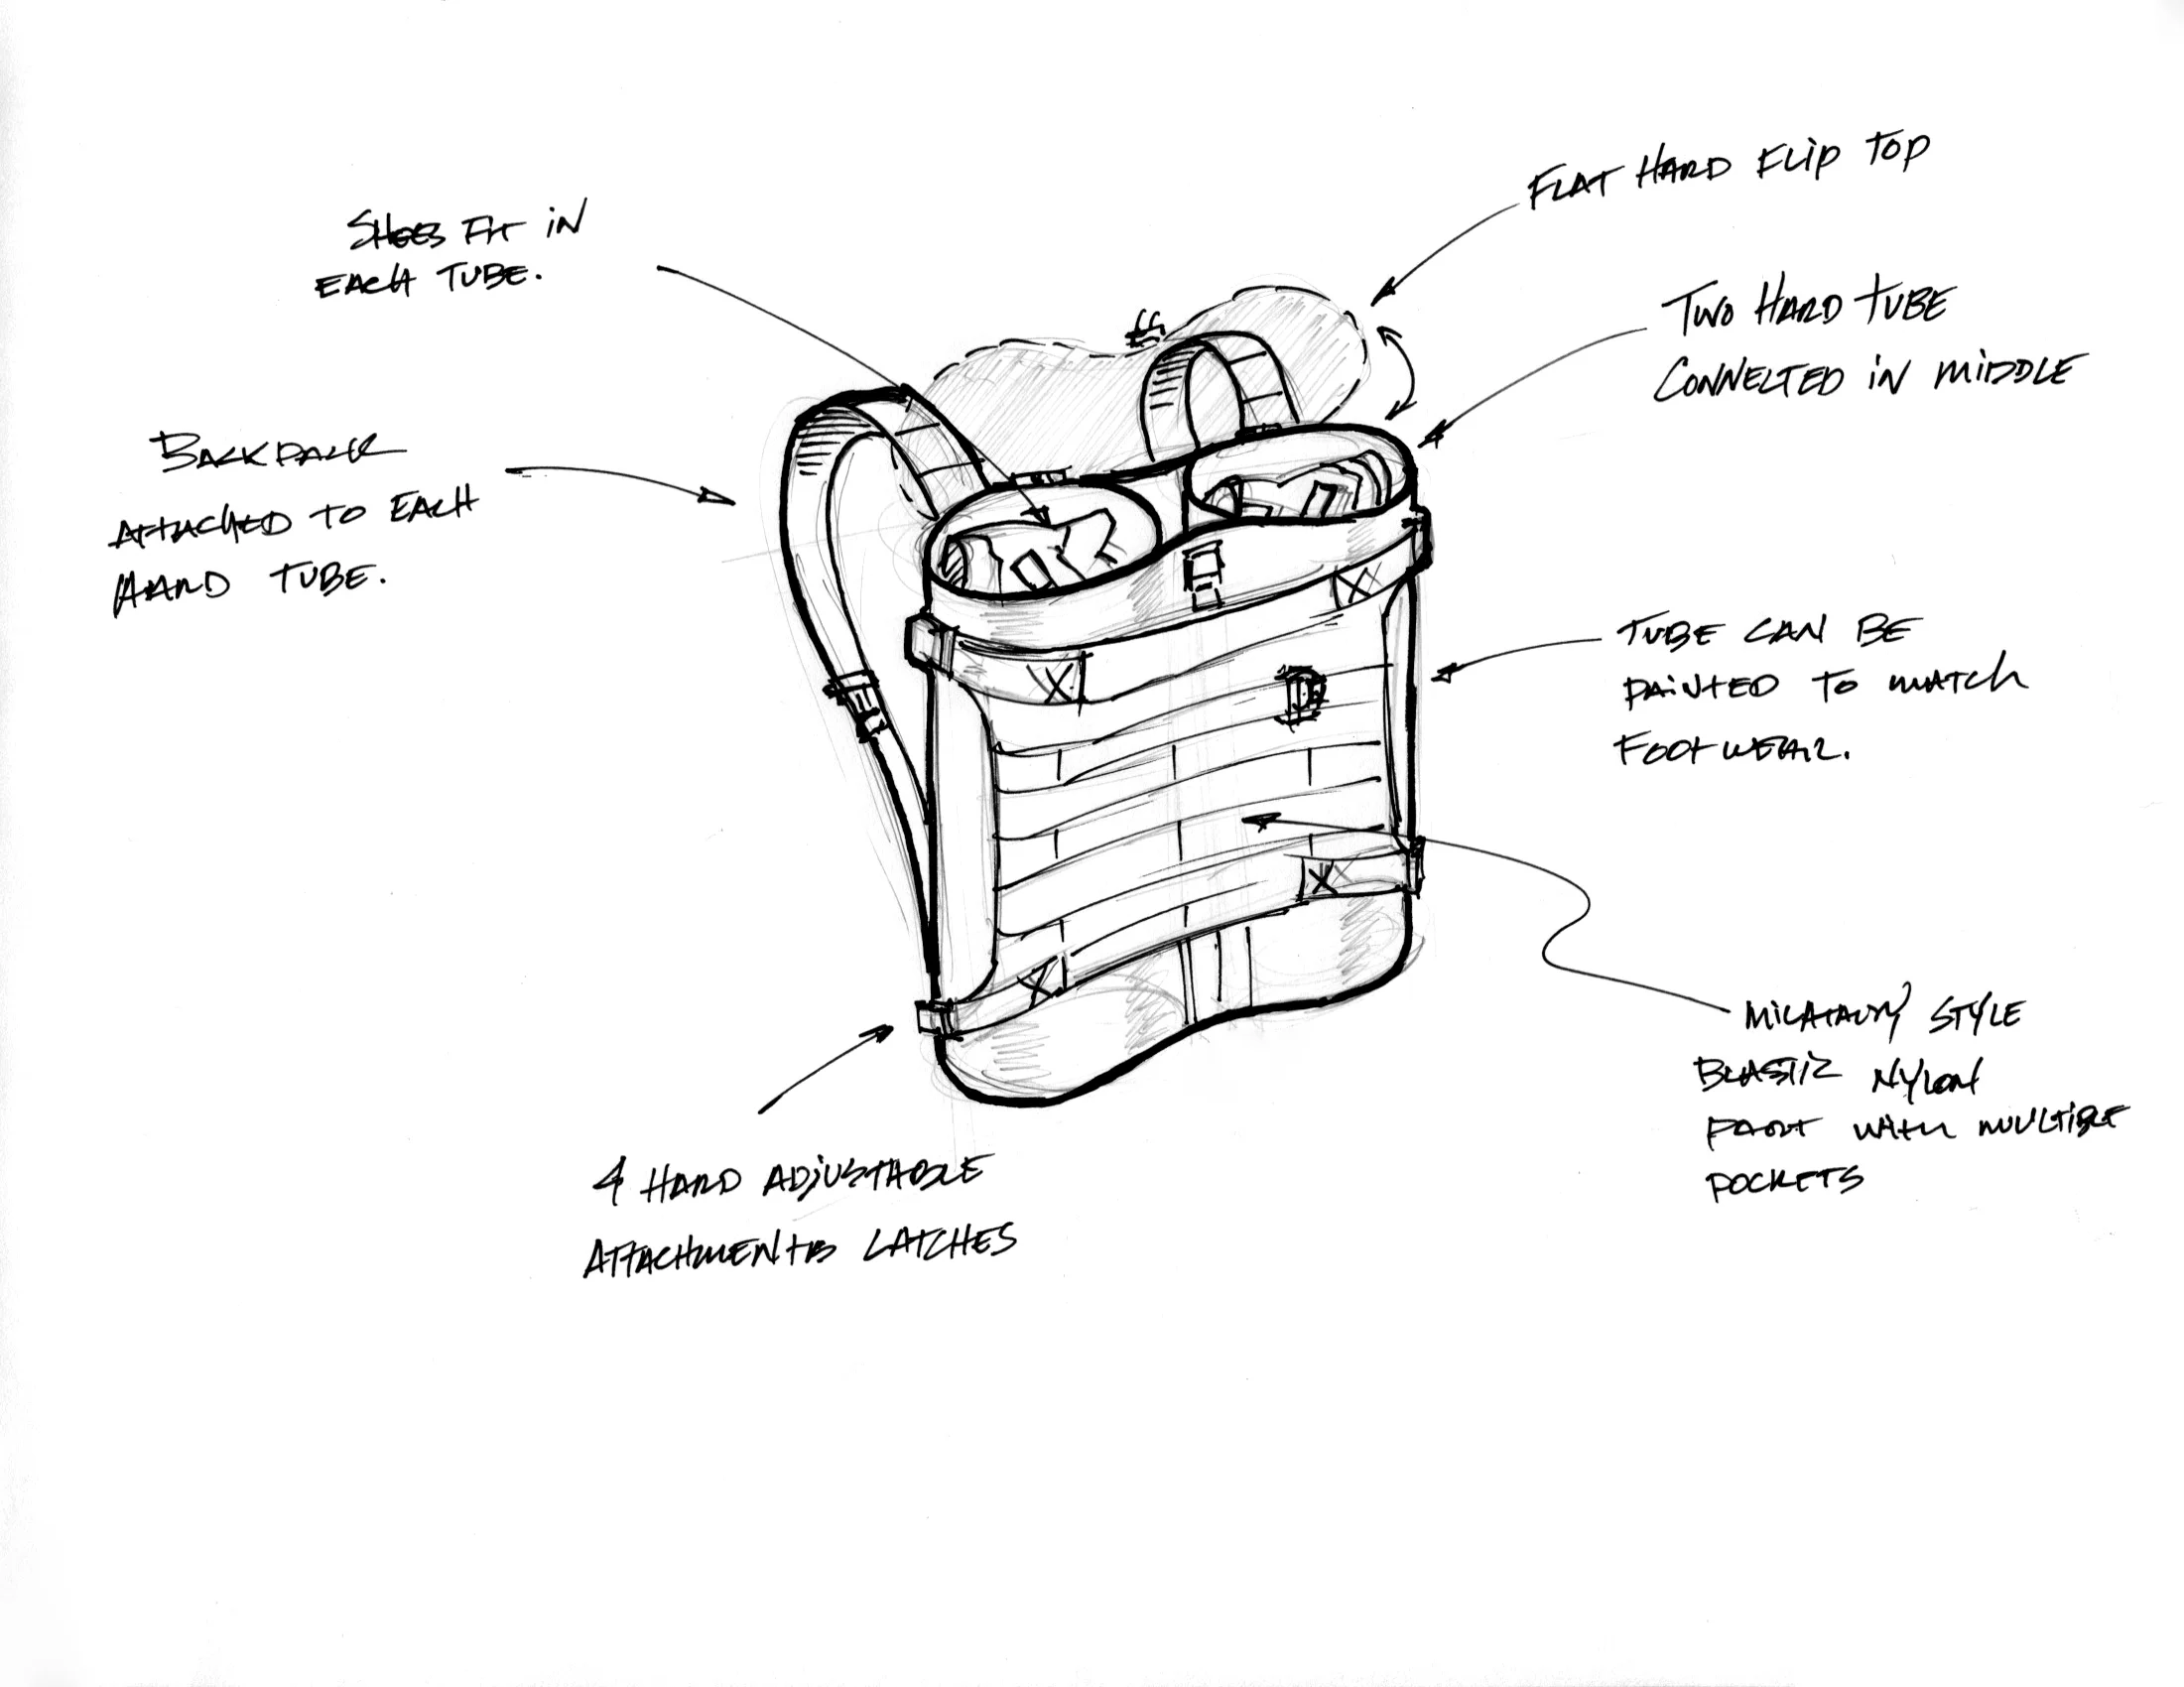 FLAT HARD FLIP TOP
SHOES FIT IN
EACH TUBE.
TWO HARD TUBE
CONNECTED IN MIDDLE
BACKPACK
ATTACHED TO EACH
HARD TUBE.
TUBE CAN BE
PAINTED TO MATCH
FOOTWEAR.
MILATARY STYLE
NYLON
WITH MULTIPLE
POCKETS
4 HARD ADJUSTABLE
ATTACHMENTS LATCHES